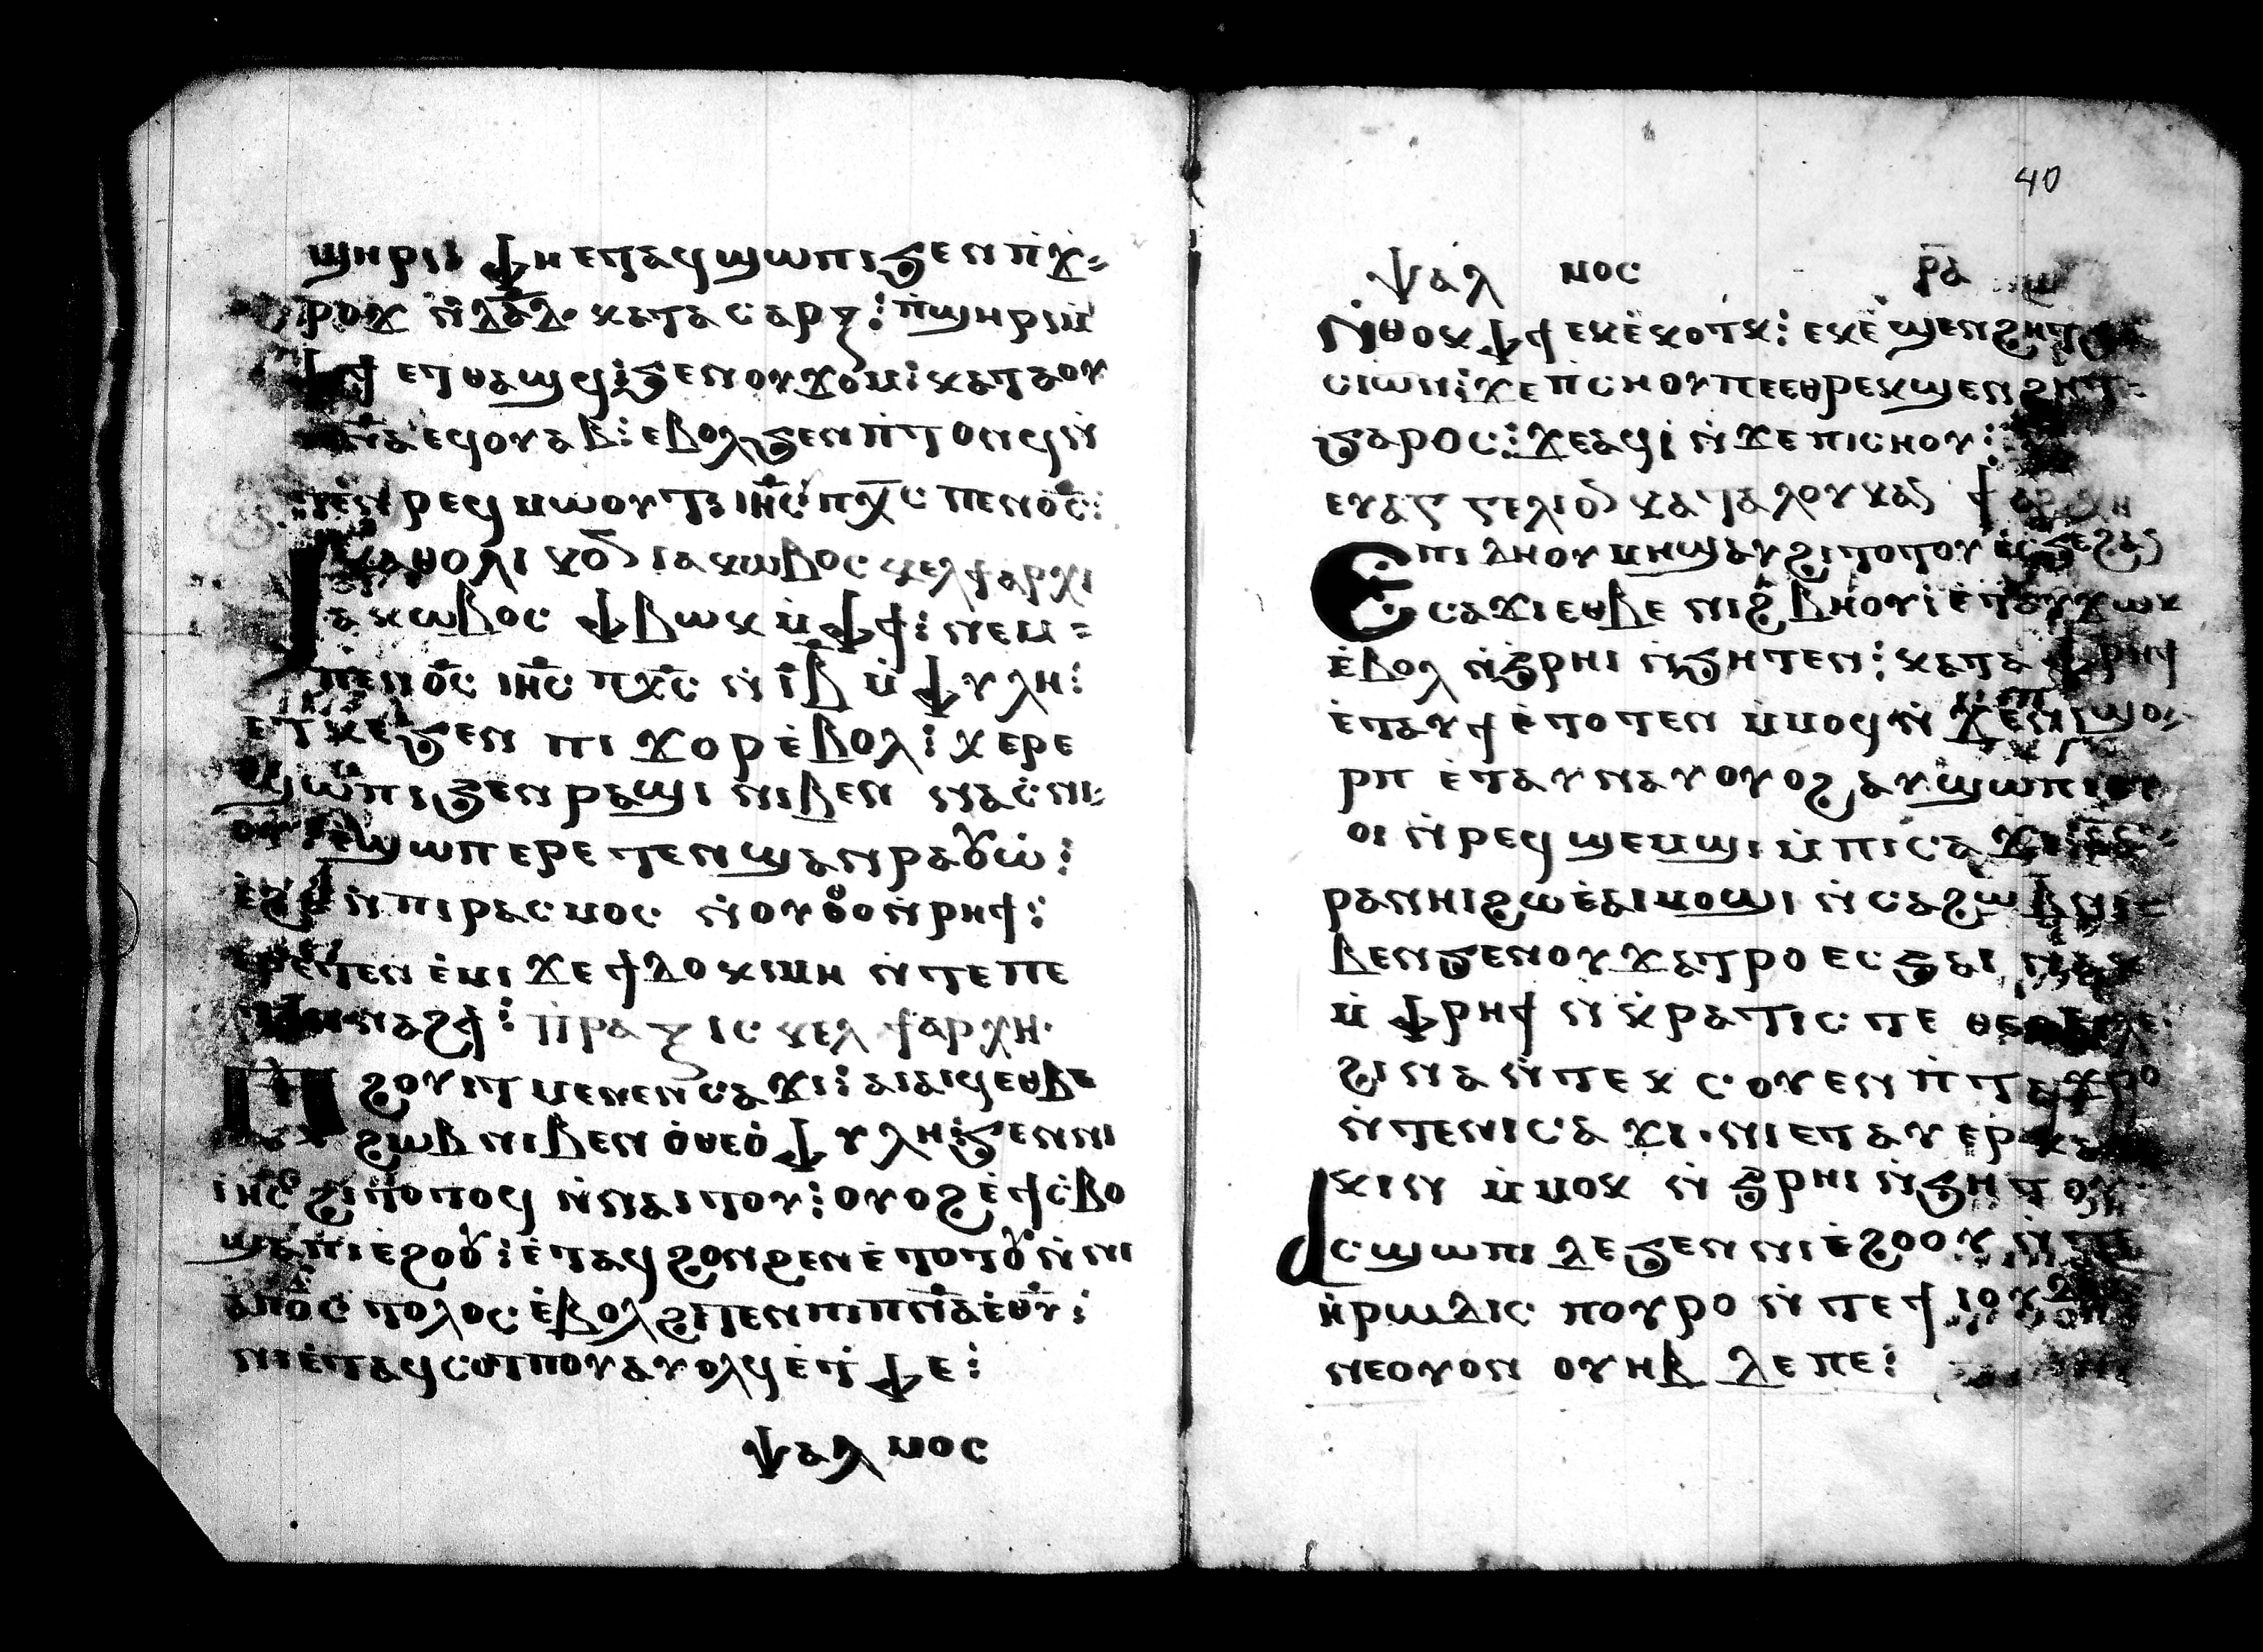 ϣⲏⲣⲓ ⲫⲏ ⲉⲧⲁϥϣⲱⲡⲓ ϧⲉⲛ ⲡϫ=
ⲣⲟϫ ⲛ̇ⲇⲁ̅ⲇ ⲕⲁⲧⲁ ⲥⲁⲣⲝ: ⲡϣⲏⲣⲓ ⲙ̇
ⲫϯ ⲉⲧⲑⲁϣϥ: ϧⲉⲛ ⲟⲩϫⲟⲙ: ⲕⲁⲧⲁ ⲟⲩ
ⲡ̅ⲛ̅ⲁ̅ ⲉϥⲟⲩⲁⲃ: ⲉⲃⲟⲗ ϧⲉⲛ ⲡ̇ⲧⲟⲛϥ ⲛ̇
ⲧⲉⲛⲣⲉϥⲙⲱⲟⲩⲧ: ⲓⲏ̅ⲥ̅ ⲡⲭ̅ⲥ̅ ⲡⲉⲛⲟ̅ⲥ̅:
ⲕⲁⲑⲟⲗⲓⲕⲟⲛ ⲓⲁⲕⲱⲃⲟⲥ ⲕⲉⲗ ϯⲁⲣⲭⲓ
ⲓⲁⲕⲱⲃⲟⲥ ⲫⲃⲱⲕ ⲙ̇ⲫϯ: ⲛⲉⲙ=
ⲡⲉⲛⲟ̅ⲥ̅ ⲓⲏ̅ⲥ̅ ⲡⲭ̅ⲥ̅ ⲛ̇ⲓ̅ⲃ̅ ⲙ̇ⲫⲩⲗⲏ:
ⲉⲧⲭⲉ ϧⲉⲛ ⲡⲓϫⲟⲣ ⲉ̇ⲃⲟⲗ: ⲭⲉⲣⲉ
ϣⲱⲡⲓ ϧⲉⲛ ⲣⲁϣⲓ ⲛⲓⲃⲉⲛ ⲛⲁⲥⲛⲓ=
ⲟⲩ ⲉϣⲱⲡ ⲉⲣⲉⲧⲉⲛϣⲁⲛⲣⲁⲟⲩⲱ̇:
ⲉ̇ϩⲁⲛⲡⲓⲣⲁⲥⲙⲟⲥ ⲛ̇ⲟⲩⲑⲟ ⲛ̇ⲣⲏϯ:
ⲉⲣⲉⲧⲉⲛⲉ̇ⲙⲓ ϫⲉ ϯⲇⲟⲕⲓⲙⲏ ⲛ̇ⲧⲉ ⲡⲉ
ⲧⲉⲛⲛⲁϩϯ: ⲡⲣⲁⲝⲓⲥ ⲕⲉⲗ ϯⲁⲣⲭⲏ
ⲡⲓϩⲟⲩⲓⲧ ⲙⲉⲛⲉⲛⲥⲁϫⲓ: ⲁⲓⲁⲓϥ ⲉⲑⲃⲉ
ϩⲱⲃ ⲛⲓⲃⲉⲛ ⲟ̇ⲑⲉⲟ̇ⲫⲩⲗⲏ: ϧⲉⲛ ⲛⲓ
ⲓⲏ̅ⲥ̅ ϩⲓⲧⲟⲧⲟϥ ⲛ̇ⲛⲁⲓⲧⲟⲩ: ⲟⲩⲟϩ ⲉ̇ϯⲥ̇ⲃⲟ
ϣⲁ ⲡⲓⲉϩⲟⲟⲩ: ⲉ̇ⲧⲁϥϩⲟⲛϩⲉⲛ ⲉ̇ⲧⲟⲧⲟⲩ ⲛ̇ⲛⲓ
ⲁⲡⲟⲥⲧⲟⲗⲟⲥ ⲉ̇ⲃⲟⲗ ϩⲓⲧⲉⲛ ⲡⲓⲡ̅ⲛ̅ⲁ̅ ⲉ̇ⲑⲩ̅:
ⲛⲓⲉ̇ⲧⲁϥⲥⲱⲧⲡⲟⲩ ⲁⲩⲟⲗϥ ⲉ̇ⲧ̇ⲫⲉ:
ⲯⲁⲗⲙⲟⲥ
40
ⲯⲁⲗ ⲙⲟⲥ ⲣ̅ⲁ̅
ⲛ̇ⲑⲟⲕ ⲫϯ ⲉⲕⲉ̇ⲕⲟⲧⲕ: ⲉⲕⲉ̇ϣⲉⲛϩⲏⲧ
ⲥⲓⲱⲛ: ϫⲉ ⲡⲥⲏⲟⲩ ⲡⲉ ⲉⲑⲣⲉⲕϣⲉⲛϩⲏⲧ=
ϧⲁⲣⲟⲥ: ϫⲉ ⲁϥⲓ̇ ⲛ̇ϫⲉ ⲡⲓⲥⲏⲟⲩ:
ⲉⲩⲁⲅⲅⲉⲗⲓⲟⲛ ⲕⲁⲧⲁ ⲗⲟⲩⲕⲁⲛ ϯⲁⲣⲭⲏ
ⲉⲡⲓⲇⲏ ⲟⲩⲙⲏϣ ⲁⲩϩⲓⲧⲟⲧⲟⲩ
ⲉ̇ⲥⲁϫⲓ ⲉⲑⲃⲉ ⲛⲓϩ̇ⲃⲏⲟⲩⲓ ⲉ̇ⲧⲁⲩϫⲱⲕ
ⲉ̇ⲃⲟⲗ ⲛ̇ϧⲣⲏⲓ ⲛ̇ϧⲏⲧⲉⲛ: ⲕⲁⲧⲁ ⲫⲣⲏϯ
ⲉ̇ⲧⲁⲩϯ ⲉ̇ⲧⲟⲧⲉⲛ ⲙ̇ⲙⲟϥ ⲛ̇ϫⲉ ⲛⲓϣⲟ=
ⲣⲡ ⲉ̇ⲧⲁⲩⲛⲁⲩ ⲟⲩⲟϩ ⲁⲩϣⲱⲡⲓ
ⲟⲓ ⲛ̇ⲣⲉϥϣⲉⲙϣⲓ ⲙ̇ⲡⲓⲥⲁϫⲓ
ⲣⲁⲛⲏⲓ ϩⲱ ⲉ̇ⲁⲓⲙⲟϣⲓ ⲛ̇ⲥⲁ ϩⲱⲃ ⲛⲓ=
ⲃⲉⲛ ϧⲉⲛ ⲟⲩⲧⲁϫⲣⲟ ⲉⲥϧⲁⲓ ⲛⲁⲕ
ⲙ̇ⲫⲣⲏϯ ⲛ̇ⲕ̇ⲣⲁⲧⲓⲥⲧⲉ
ϩⲓⲛⲁ ⲛ̇ⲧⲉⲕⲥⲟⲩⲉⲛ ⲡ̇ⲧⲁϫⲣⲟ
ⲛ̇ⲧⲉ ⲛⲓⲥⲁϫⲓ ⲛⲓⲉⲧⲁⲩⲉⲣⲕⲁ
ⲕⲓⲛ ⲙ̇ⲙⲟⲕ ⲛ̇ϧⲣⲏⲓ ⲛ̇ϧⲏⲧⲟⲩ
ⲁⲥϣⲱⲡⲓ ⲇⲉ ϧⲉⲛ ⲛⲓⲉ̇ϩⲟⲟⲩ ⲛ̇ⲧⲉ
ⲏ̇ⲣⲱⲇⲓⲥ ⲡⲟⲩⲣⲟ ⲛ̇ⲧⲉ ϯⲓⲟⲩⲇⲉⲁ
ⲛⲉⲟⲩⲟⲛ ⲟⲩⲏⲃ ⲇⲉ ⲡⲉ: